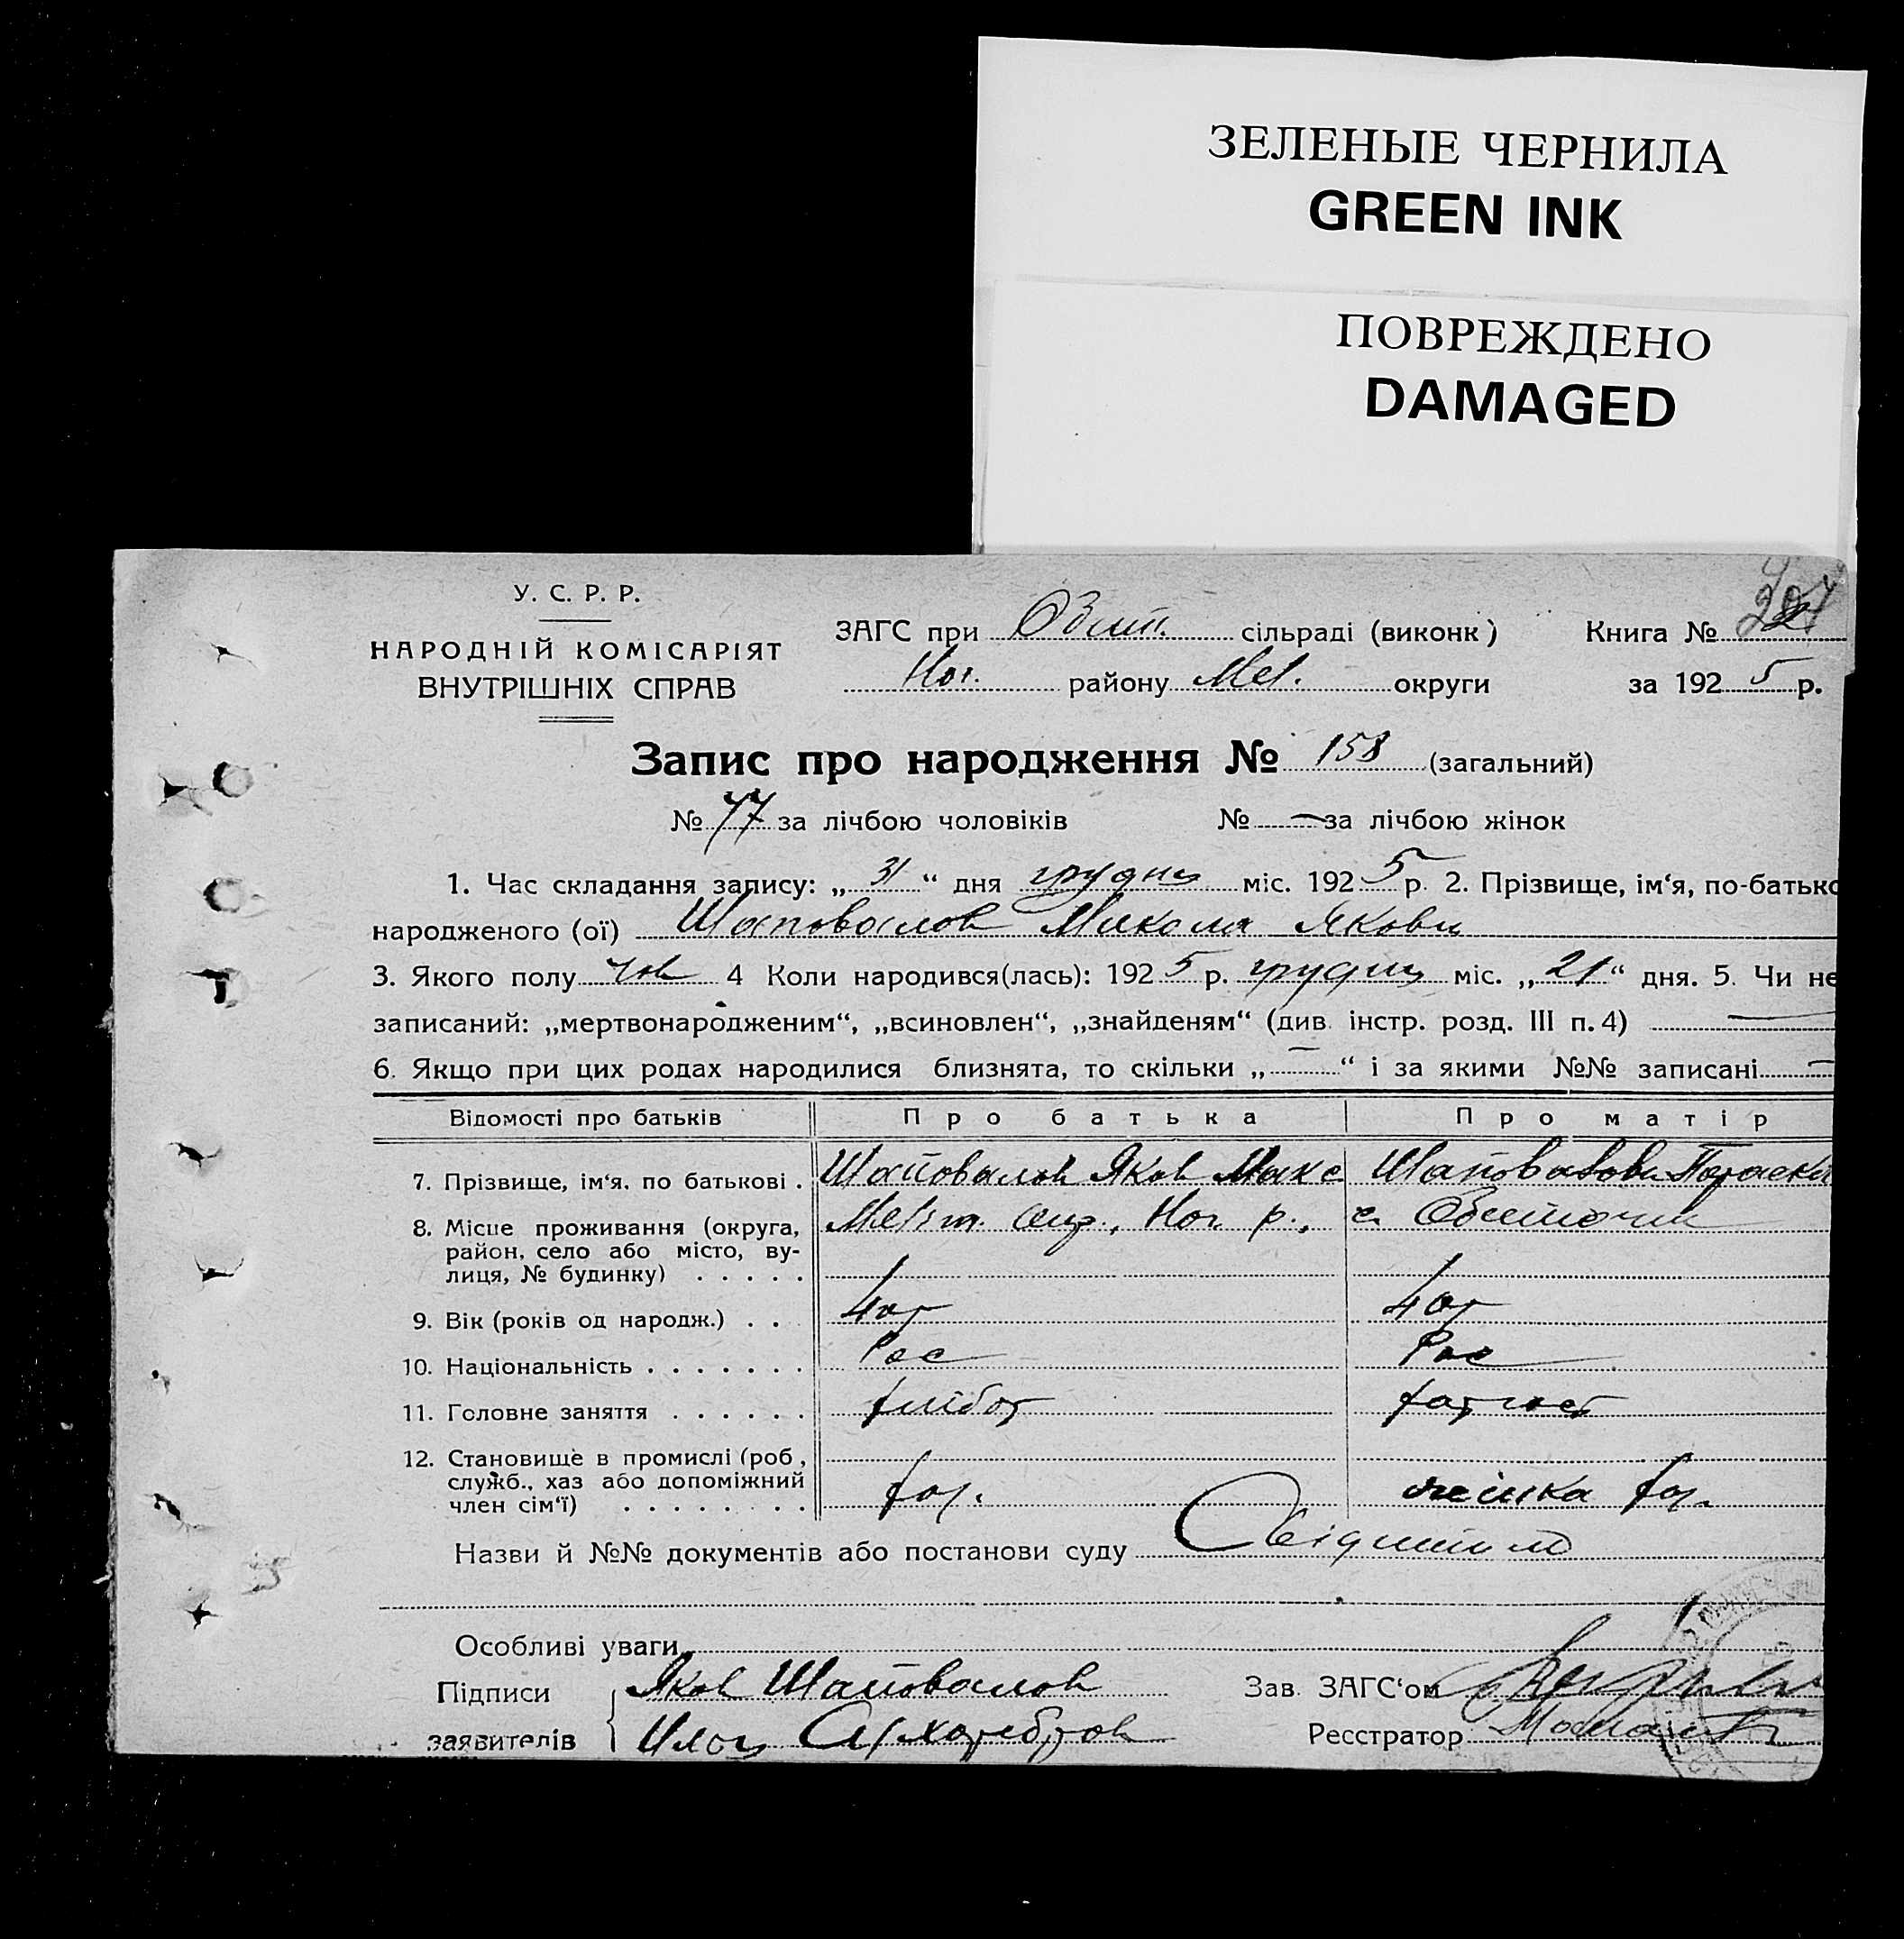 ЗЕЛЕНЫЕ ЧЕРНИЛА
GREEN INK
ПОВРЕЖДЕНО
DAMAGED
У. С. Р. Р.
НАРОДНІЙ КОМІСАРІЯТ
ВНУТРІШНІХ СПРАВ
ЗАГС при сільраді (виконк) Книга №
Ног. району Мел. округи за 1925 р.
Запис про народження № 158 (загальний)
№ 77 за лічбою чоловіків № — за лічбою жінок
1. Час складання запису: „31“ дня грудня міс. 1925 р. 2. Прізвище, ім‘я, по-батько
народженого (ої) Шаповалов Микола Якови
3. Якого полу чов 4 Коли народився(лась): 1925 р. грудня міс. „21“ дня. 5. Чи не
записаний: „мертвонародженим“, „всиновлен“, „знайденям“ (див. інстр. розд. III п. 4) —
6. Якщо при цих родах народилися близнята, то скільки „—“ і за якими №№ записані —
Відомості про батьків Про батька Про матір
7. Прізвище, ім‘я. по батькові . Шаповалов Яков Макс Шаповалова Параска
8. Місце проживання (округа, район, село або місто, вулиця, № будинку) . . . . . Меліт. окр., Ног. р., с. Обиточки
9. Вік (років од народж.) . . 40 р 40 р
10. Національність . . . . . . . Рос Рос
11. Головне заняття . . . . . . хлібор
12. Становище в промислі (роб, служб., хаз або допоміжний член сім‘ї) . . . . . . . . хаз. жінка хаз.
Назви й №№ документів або постанови суду
Особливі уваги
Підписи Яков Шаповалов Зав. ЗАГС‘ом
заявителів Реєстратор